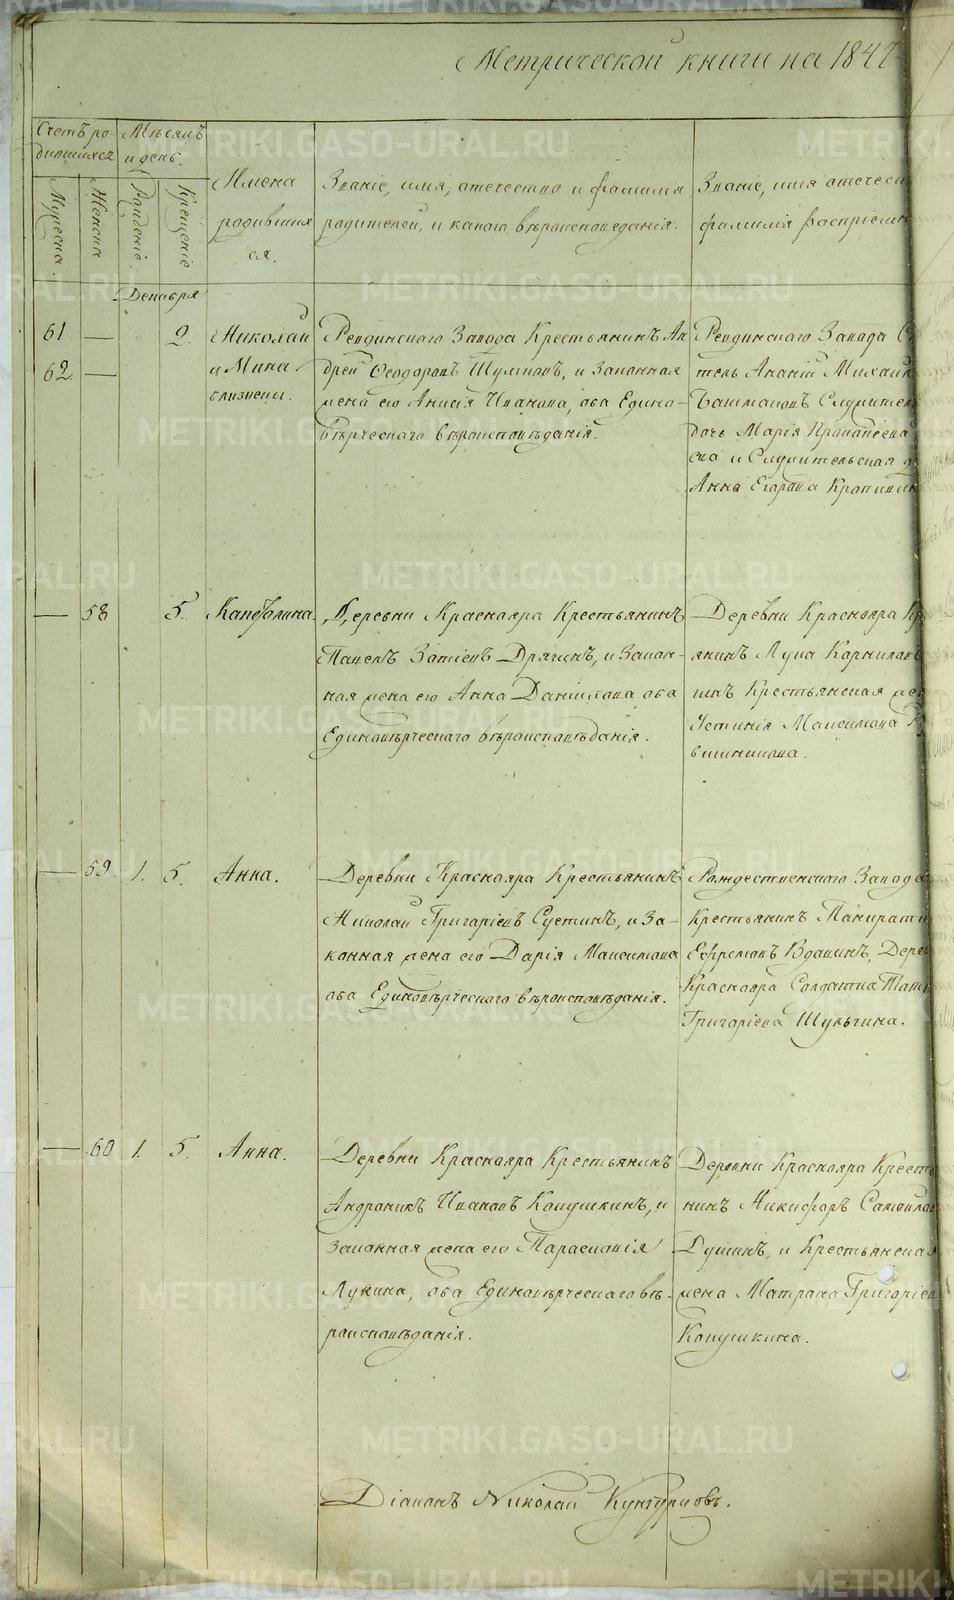 Метрической книги на 1847
Счетъ ро-
дившихся
Мѣсяцъ
и день.
Имена
родивших
ся.
Званіе, имя, отечество и фамилія
родителей, и какого вѣроисповеданія.
Званіе, имя отечест
фамилія воспріемн
Мужеска.
Женска
Рожденіе.
Крещеніе
Декабря
61 — 2. Николай
62 — и Мина
близнецы.
Ревдинскаго Завода Крестьянинъ Ан
дрей Ѳеодоровъ Шумиловъ, и Законная
жена его Анисія Иванова, оба Едино-
вѣрческаго вѣроисповѣданія.
Ревдинскаго Завода С
тель Ананій Михаил
Башмаковъ Служител
дочь Марія
ева и Служительская д
Анна Егорова
— 58 5. Капетолина.
Деревни Краснояра Крестьянинъ
Павелъ Дрягинъ, и Закон-
ная жена его Анна Данилова оба
Единовѣрческаго вѣроисповѣданія.
Деревни Краснояра Кр
янинъ Лука Корнилов
Крестьянская же
Устинія Максимова
— 59. 1. 5. Анна.
Деревни Краснояра Крестьянинъ
Николай Григоріевъ Суетинъ, и За-
конная жена его Дарія Максимова
оба Единовѣрческаго вѣроисповѣданія.
Рождественскаго Завода
Крестьянинъ Панкрати
Ефремовъ Вдовинъ, Дерев
Краснояра Солдатка Тать
Григоріева Шульгина.
— 60 1. 5. Анна.
Деревни Краснояра Крестьянинъ
Андроникъ Ивановъ Кокушкинъ, и
Законная жена его Парасковія
Лукина, оба Единовѣрческаго вѣ-
роисповѣданія.
Деревни Краснояра Кресть
нинъ Никифоръ Самойлов
и Крестьянская
жена Матрона Григоріев
Кокушкина.
Діаконъ Николай Кунгурцовъ.
METRIKI.GASO-URAL.RU